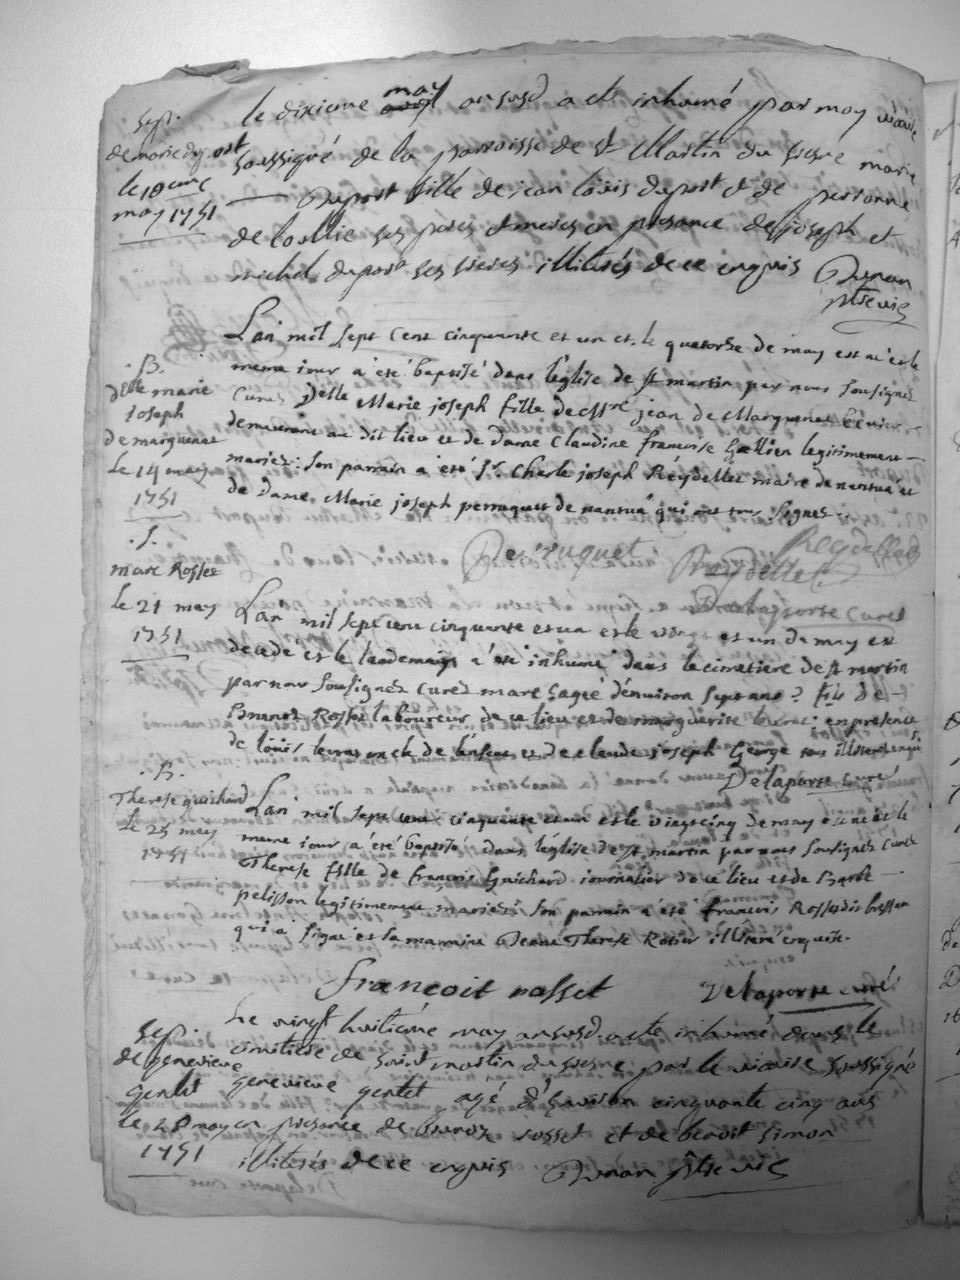 Sep.
de marie duport
le 10eme
may 1751
le dixieme may avril an susd a eté inhumé par moy vicaire
soussigné de la parroisse de st Martin du fresne marie
Duport fille de jean louis duport et de perronne
de ses peres et meres en presance de joseph et
michel duport ses freres illiterés de ce enquis Dunan
ptre vic
.B.
delle marie
joseph
de marquenat
le 14 may
1751
Lan mil sept cent cinquante et un et le quatorze de may est né et le
meme iour a été baptisé dans l'eglise de st martin par nous soussignez
curez Delle Marie joseph fille de Mre jean de Marquenat
demeurant au dit lieu et de Dame Claudine francoise legitimement
mariez: son parrain a été Sr. Charle joseph Reydellet maire de nantua et
de Dame Marie joseph perruquet de nantua qui ont tous signes
Perruquet Reydellet Reydellet
Delaporte curé
.S.
marc Rosset
le 21 may
1751
Lan mil sept cent cinquante et un et le vingt et un de may est
decedé et le landemain a été inhumé dans le cimetiere de st martin
par nous soussignez curez marc agé d'enuiron sept ans fils de
Rosset laboureur de ce lieu et de marguerite en presence
de louis de l'enfant et de claude joseph George tous
Delaporte curé
.B.
Therese guichard
le 25 may
1751
Lan mil sept cent cinquante et un et le vingt cinq de may est né et le
meme iour a été baptisé dans l'eglise de st martin par nous soussignez curez
Therese fille de francois Guichard iournalier de ce lieu et de Barbe
pelisson legitimement mariez: son parrain a été francois Rosset
qui a signé et sa marraine Jeane Therese Rosier illiterée enquise.
francoit rosset Delaporte curé
Sep.
de genevieve
gentet
le 28 may
1751
Le vingt huitiéme may an susd. a eté inhumé dans le
cimitiere de saint martin du fresne par le vicaire soussigné
genevieve gentet agé d'environ cinquante cinq ans
en presance de rosset et de benoit simon
illiterés de ce enquis Dunan ptre vic